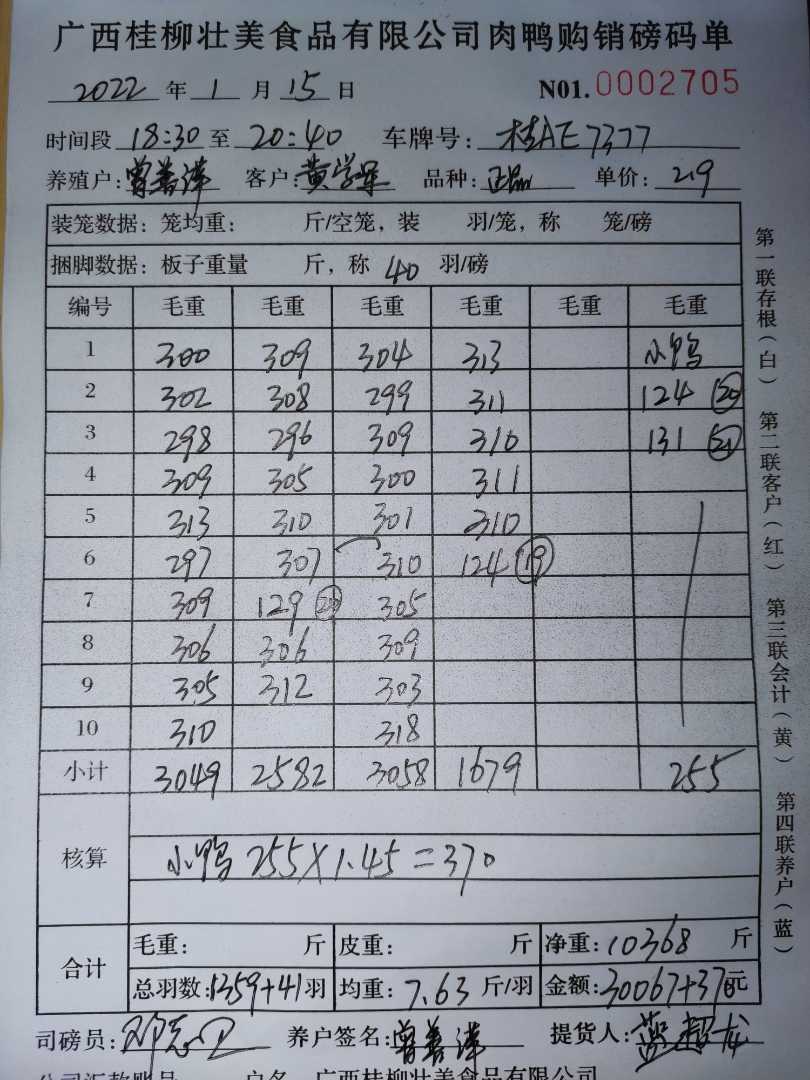 广西桂柳壮美食品有限公司肉鸭购销磅码单
2022 年 1 月 15 日 N01. 0002705
时间段 18:30 至 20:40 车牌号: 桂AE7377
养殖户: 曾善洋 客户: 黄学军 品种: 正品 单价: 2.9
装笼数据: 笼均重: 斤/空笼, 装 羽/笼, 称 笼/磅
捆脚数据: 板子重量 斤, 称 40 羽/磅
编号 毛重 毛重 毛重 毛重 毛重 毛重
1 300 309 304 313 小鸭
2 302 308 299 311 124 (20)
3 298 296 309 310 131 (21)
4 309 305 300 311
5 313 310 301 310
6 297 307 310 124 (19)
7 309 129 (20) 305
8 306 306 309
9 305 312 303
10 310 318
小计 3049 2582 3058 1679 255
核算 小鸭 255X1.45=370
合计 毛重: 斤 皮重: 斤 净重: 10368 斤
总羽数: 1359+41 羽 均重: 7.63 斤/羽 金额: 30067+370 元
司磅员: 养户签名: 曾善洋 提货人: 蓝超龙
公司汇款账号 户名 广西桂柳壮美食品有限公司
第一联存根(白) 第二联客户(红) 第三联会计(黄) 第四联养户(蓝)